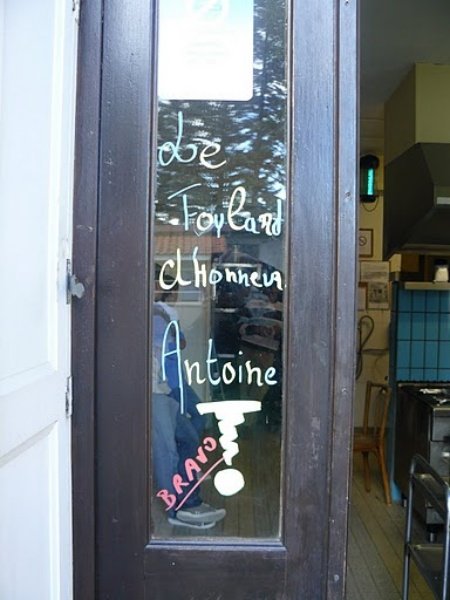 Le
Foulard
d'Honneur
Antoine
!
BRAVO